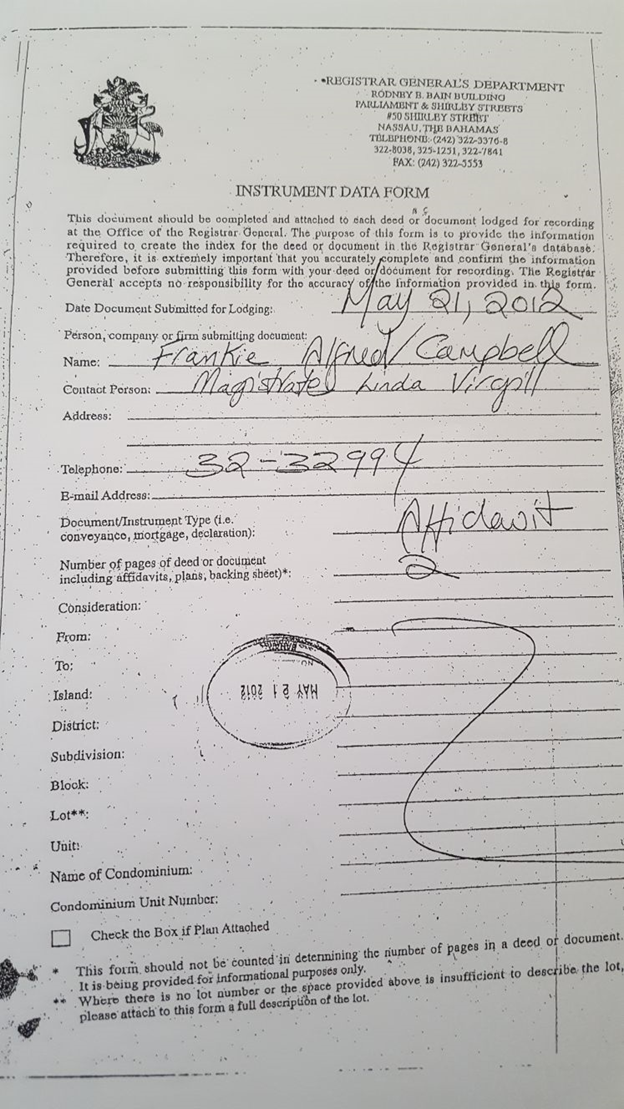 REGISTRAR GENERAL'S DEPARTMENT
RODNEY E. BAIN BUILDING
PARLIAMENT & SHIRLEY STREETS
#50 SHIRLEY STREET
NASSAU, THE BAHAMAS
TELEPHONE: (242) 322-3376-8
322-8038, 325-1251, 322-7841
FAX: (242) 322-5553
INSTRUMENT DATA FORM
This document should be completed and attached to each deed or document lodged for recording
at the Office of the Registrar General. The purpose of this form is to provide the information
required to create the index for the deed or document in the Registrar General's database.
Therefore, it is extremely important that you accurately complete and confirm the information
provided before submitting this form with your deed or document for recording. The Registrar
General accepts no responsibility for the accuracy of the information provided in this form.
Date Document Submitted for Lodging: May 21, 2012
Person, company or firm submitting document:
Name: Frankie Alfred/Campbell
Contact Person: Magistrate Linda Virgill
Address:
Telephone: 32-32994
E-mail Address:
Document/Instrument Type (i.e.
conveyance, mortgage, declaration): Affidavit
Number of pages of deed or document
including affidavits, plans, backing sheet)*: 2
Consideration:
From:
To:
Island:
MAY 21 2012
District:
Subdivision:
Block:
Lot**:
Unit:
Name of Condominium:
Condominium Unit Number:
Check the Box if Plan Attached
* This form should not be counted in determining the number of pages in a deed or document.
It is being provided for informational purposes only.
** Where there is no lot number or the space provided above is insufficient to describe the lot,
please attach to this form a full description of the lot.